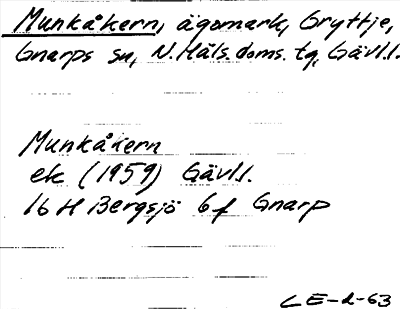 Munkåkern, ägomark, Gryttje,
Gnarps sn, N. Häls. doms. tg, Gävl.l.
Munkåkern
ek (1959) Gävl.l.
16 H Bergsjö 6 f Gnarp
LE-2-63